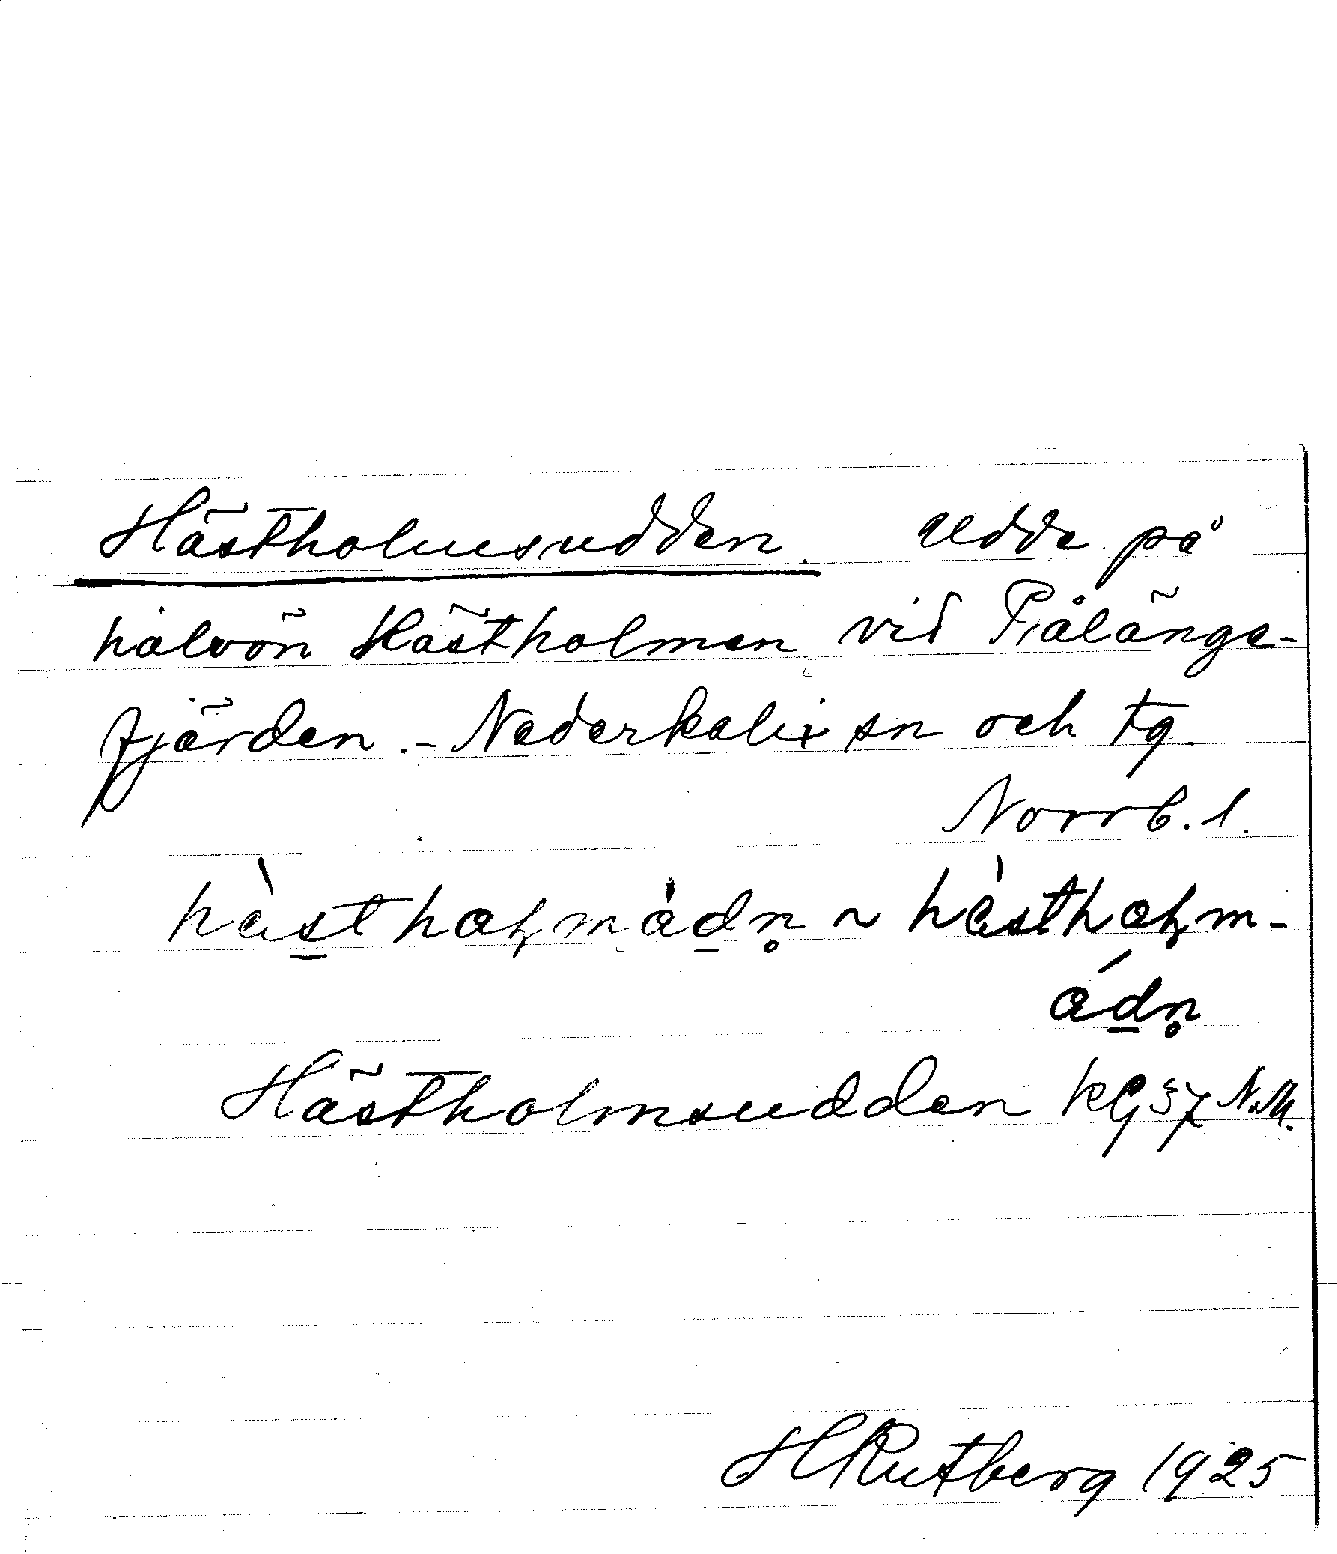 Hästholmsudden. Udde på
halvön Hästholmen vid Pålänge-
fjärden. - Nederkalix sn och tg
Norrb. l.
hàsthoɫmàdn̥ ~ hàsthoɫm-
ádn̥
Hästholmsudden KG 57 N.M.
HRutberg 1925